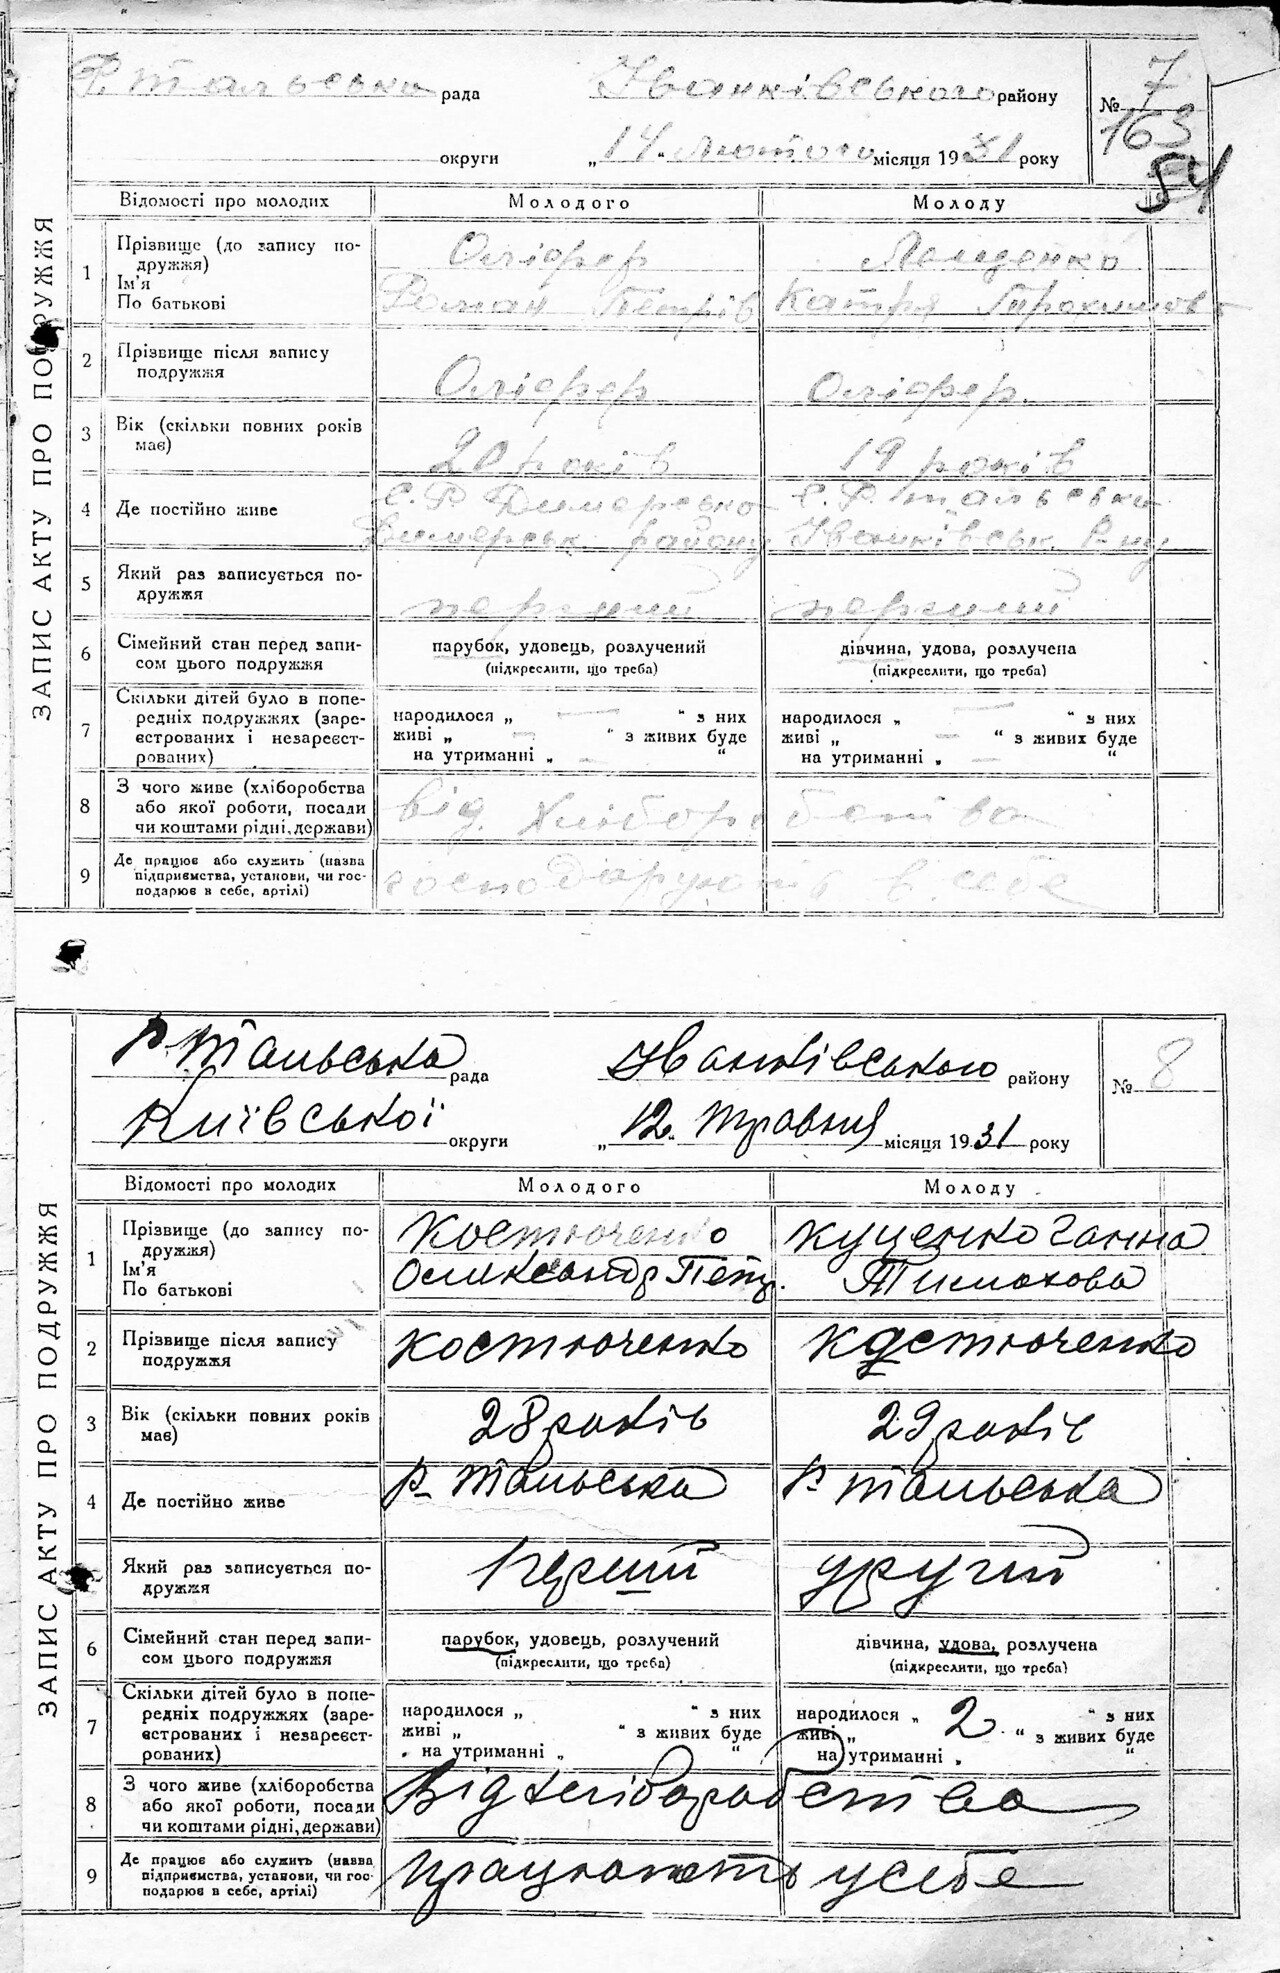 Р. Тальська рада Іванківського району № 7
163
54
округи „14" Лютого місяця 1931 року
ЗАПИС АКТУ ПРО ПОДРУЖЖЯ
Відомості про молодих Молодого Молоду
1 Прізвище (до запису по-
дружжя)
Ім'я
По батькові
Оліфер
Роман Петрів
Катря
2 Прізвище після запису
подружжя
Оліфер Оліфер.
3 Вік (скільки повних років
має)
20 років 19 років
4 Де постійно живе
С. Р. Димерська
Димерськ. району
С. Р. Тальська
Іванківськ. Р-ну
5 Який раз записується по-
дружжя
перший перший
6 Сімейний стан перед запи-
сом цього подружжя
парубок, удовець, розлучений
(підкреслити, що треба)
дівчина, удова, розлучена
(підкреслити, що треба)
7 Скільки дітей було в попе-
редніх подружжях (заре-
єстрованих і незареєст-
рованих)
народилося „ — " з них
живі „ — " з живих буде
на утриманні „ — "
народилося „ — " з них
живі „ — " з живих буде
на утриманні „ — "
8 З чого живе (хліборобства
або якої роботи, посади
чи коштами рідні, держави)
від. Хліборобства
9 Де працює або служить (назва
підприємства, установи, чи гос-
подарює в себе, артілі)
господарують в. себе
Р. Тальська рада Іванківського району № 8
Київської округи „12" травня місяця 1931 року
ЗАПИС АКТУ ПРО ПОДРУЖЖЯ
Відомості про молодих Молодого Молоду
1 Прізвище (до запису по-
дружжя)
Ім'я
По батькові
Костюченко
Олександр Петр.
Куценко Ганна
Тимохова
2 Прізвище після запису
подружжя
Костюченко Костюченко
3 Вік (скільки повних років
має)
28 років 29 років
4 Де постійно живе
Р- Тальська Р Тальська
5 Який раз записується по-
дружжя
Перший другий
6 Сімейний стан перед запи-
сом цього подружжя
парубок, удовець, розлучений
(підкреслити, що треба)
дівчина, удова, розлучена
(підкреслити, що треба)
7 Скільки дітей було в попе-
редніх подружжях (заре-
єстрованих і незареєст-
рованих)
народилося „ " з них
живі „ " з живих буде
на утриманні „ "
народилося „ 2 " з них
живі „ " з живих буде
на утриманні „ "
8 З чого живе (хліборобства
або якої роботи, посади
чи коштами рідні, держави)
Від хліборобства
9 Де працює або служить (назва
підприємства, установи, чи гос-
подарює в себе, артілі)
працюють у себе